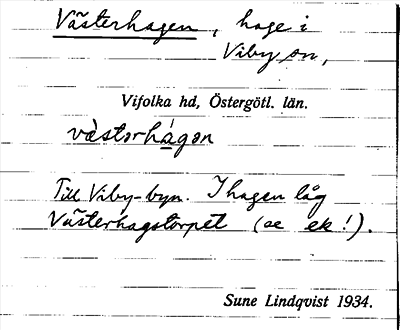 Västerhagen, hage i
Viby sn,
Vifolka hd, Östergötl. län.
våstərhágən
Till Viby-byn. I hagen låg
Västerhagstorpet (se ek!).
Sune Lindqvist 1934.